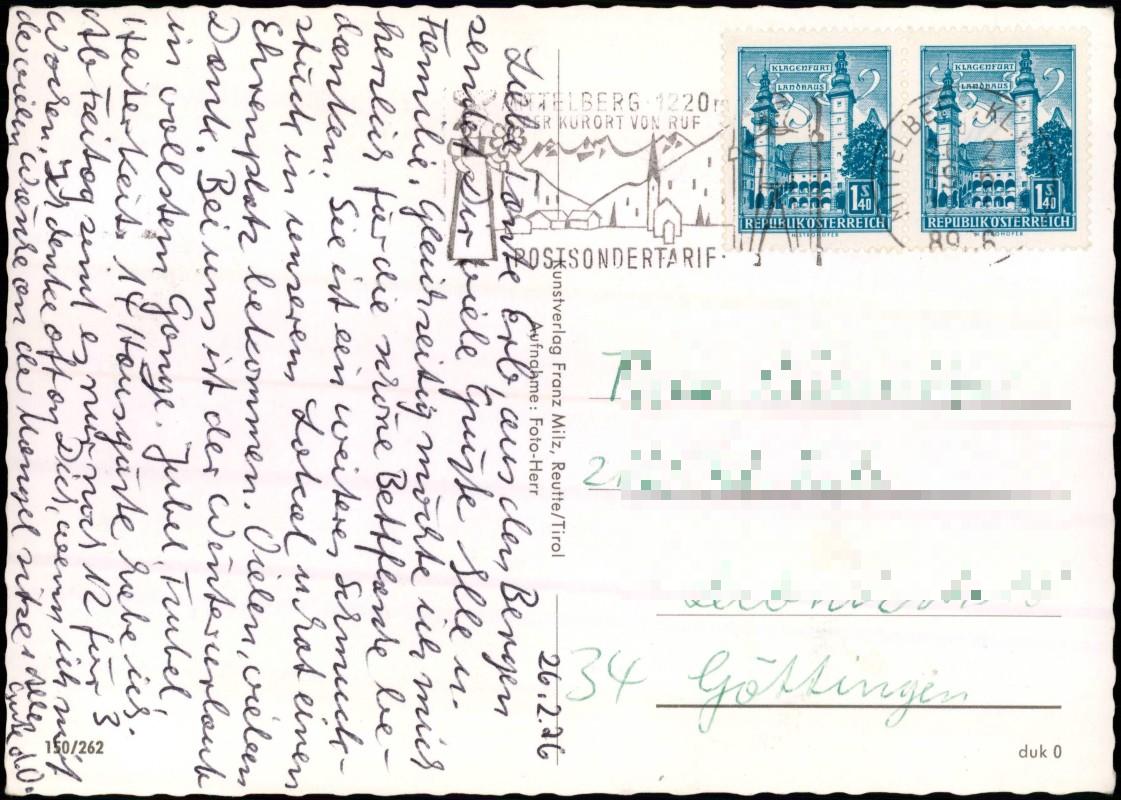 26.2.76
Liebe Tante Erb, aus den Bergen
sendet Dir viele Grüße Ille u.
Familie. Gleichzeitig möchte ich mich
herzlich für die schöne Bettflasche be-
danken. Sie ist ein weiteres Schmuck-
stück in unserem Lokal u. hat einen
Ehrenplatz bekommen. Vielen, vielen
Dank. Bei uns ist der Winterurlaub
in vollstem Gange. Jubel, Trubel,
Heiterkeit. 14 Hausgäste habe ich.
Ab Freitag sind es nur noch 12 für 3
Wochen. Ich denke oft an Dich, wenn ich mit
der vielen Wäsche an der Mangel sitze. Alles
Gute
MITTELBERG·1220m
DER KURORT VON RUF
POSTSONDERTARIF·
KLAGENFURT
LANDHAUS
1 S 40
REPUBLIK ÖSTERREICH
KLAGENFURT
LANDHAUS
1 S 40
REPUBLIK ÖSTERREICH
MITTELBERG, KL.
Kunstverlag Franz Milz, Reutte/Tirol
Aufnahme: Foto-Herr
34 Göttingen
150/262
duk 0